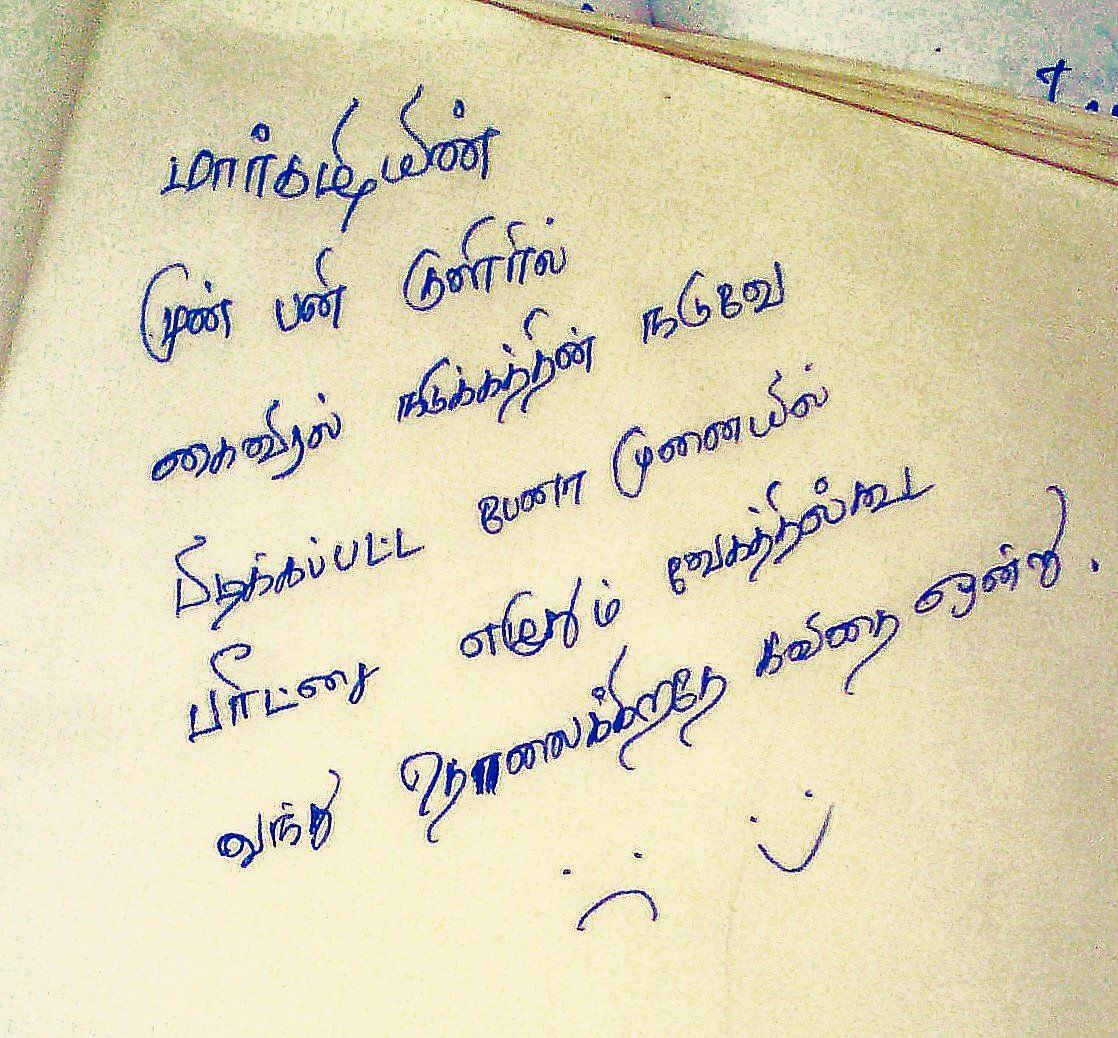 மார்கழியின்
முன் பனி குளிரில்
கைவிரல் நடுக்கத்தின் நடுவே
பிடிக்கப்பட்ட பேனா முனையில்
பரிட்சை எழுதும் வேகத்தில்கூட
வந்து தொலைக்கிறதே கவிதை ஒன்று.